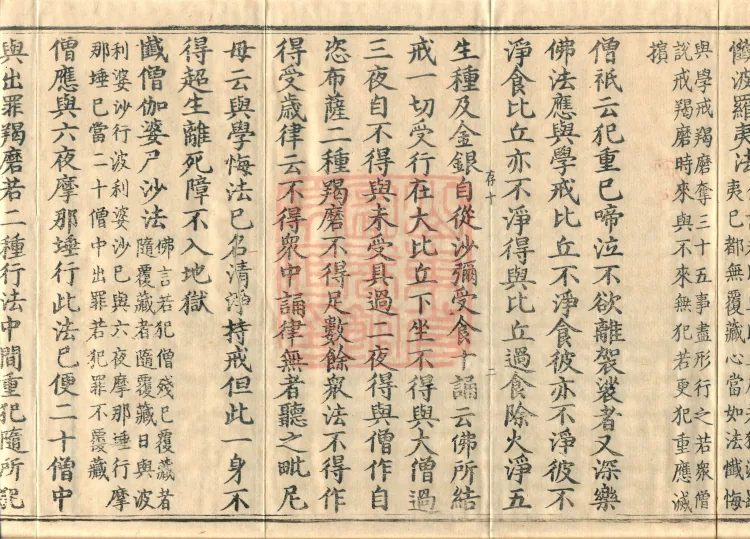 懺波羅夷法
夷已都無覆藏心當如法懺悔
與學戒羯磨奪三十五事盡形行之若眾僧
說戒羯磨時來與不來無犯若更犯重應滅
擯
僧祇云犯重已啼泣不欲離袈裟者又深樂
佛法應與學戒比丘不淨食彼亦不淨彼不
淨食比丘亦不淨得與比丘過食除火淨五
存十 二
生種及金銀自從沙彌受食十誦云佛所結
戒一切受行在大比丘下坐不得與大僧過
三夜自不得與未受具過二夜得與僧作自
恣布薩二種羯磨不得足數餘眾法不得作
得受歲律云不得眾中誦律無者聽之毗尼
母云與學悔法已名清淨持戒但此一身不
得超生離死障不入地獄
懺僧伽婆尸沙法
佛言若犯僧殘已覆藏者
隨覆藏者隨覆藏日與波
利婆沙行波利婆沙已與六夜摩那埵行摩
那埵已當二十僧中出罪若犯罪不覆藏
僧應與六夜摩那埵行此法已便二十僧中
與出罪羯磨若二種行法中間重犯隨所犯